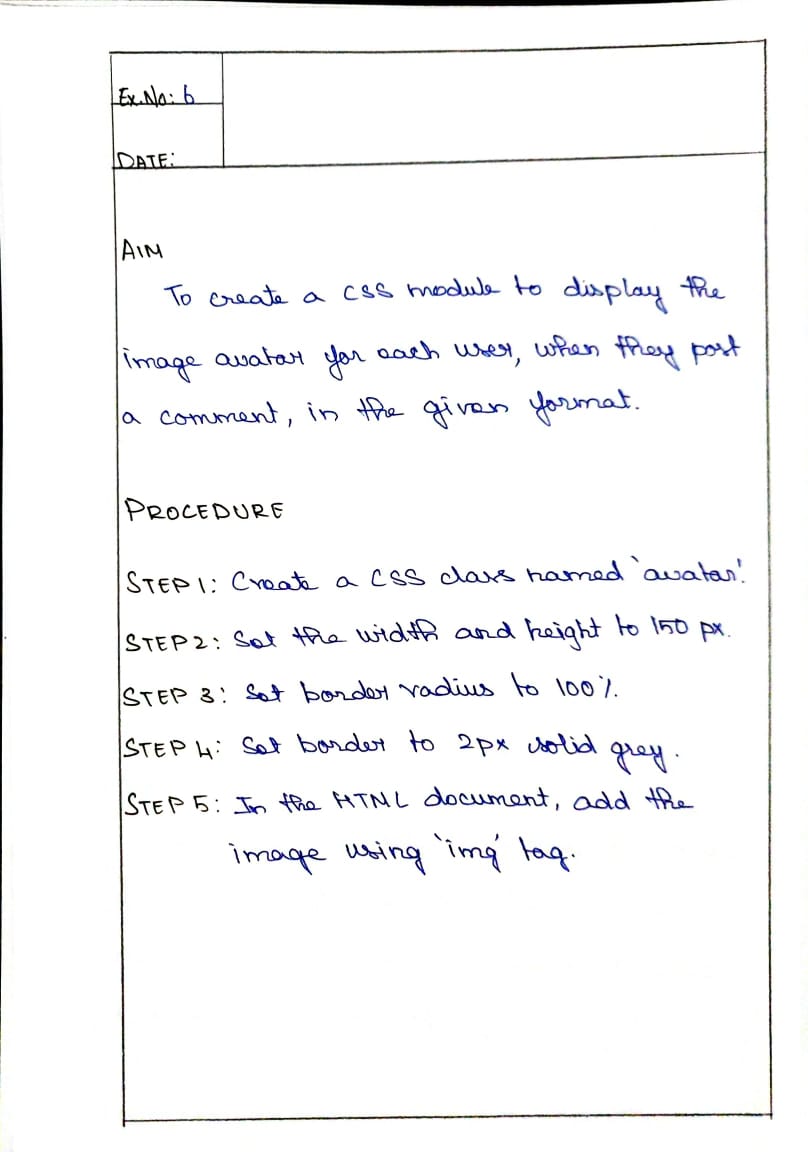 Ex.No: 6
DATE:
AIM
To create a CSS module to display the
image avatar for each user, when they post
a comment, in the given format.
PROCEDURE
STEP 1: Create a CSS class named 'avatar'.
STEP 2: Set the width and height to 150 px.
STEP 3: Set border radius to 100%.
STEP 4: Set border to 2px solid grey.
STEP 5: In the HTML document, add the
image using 'img' tag.